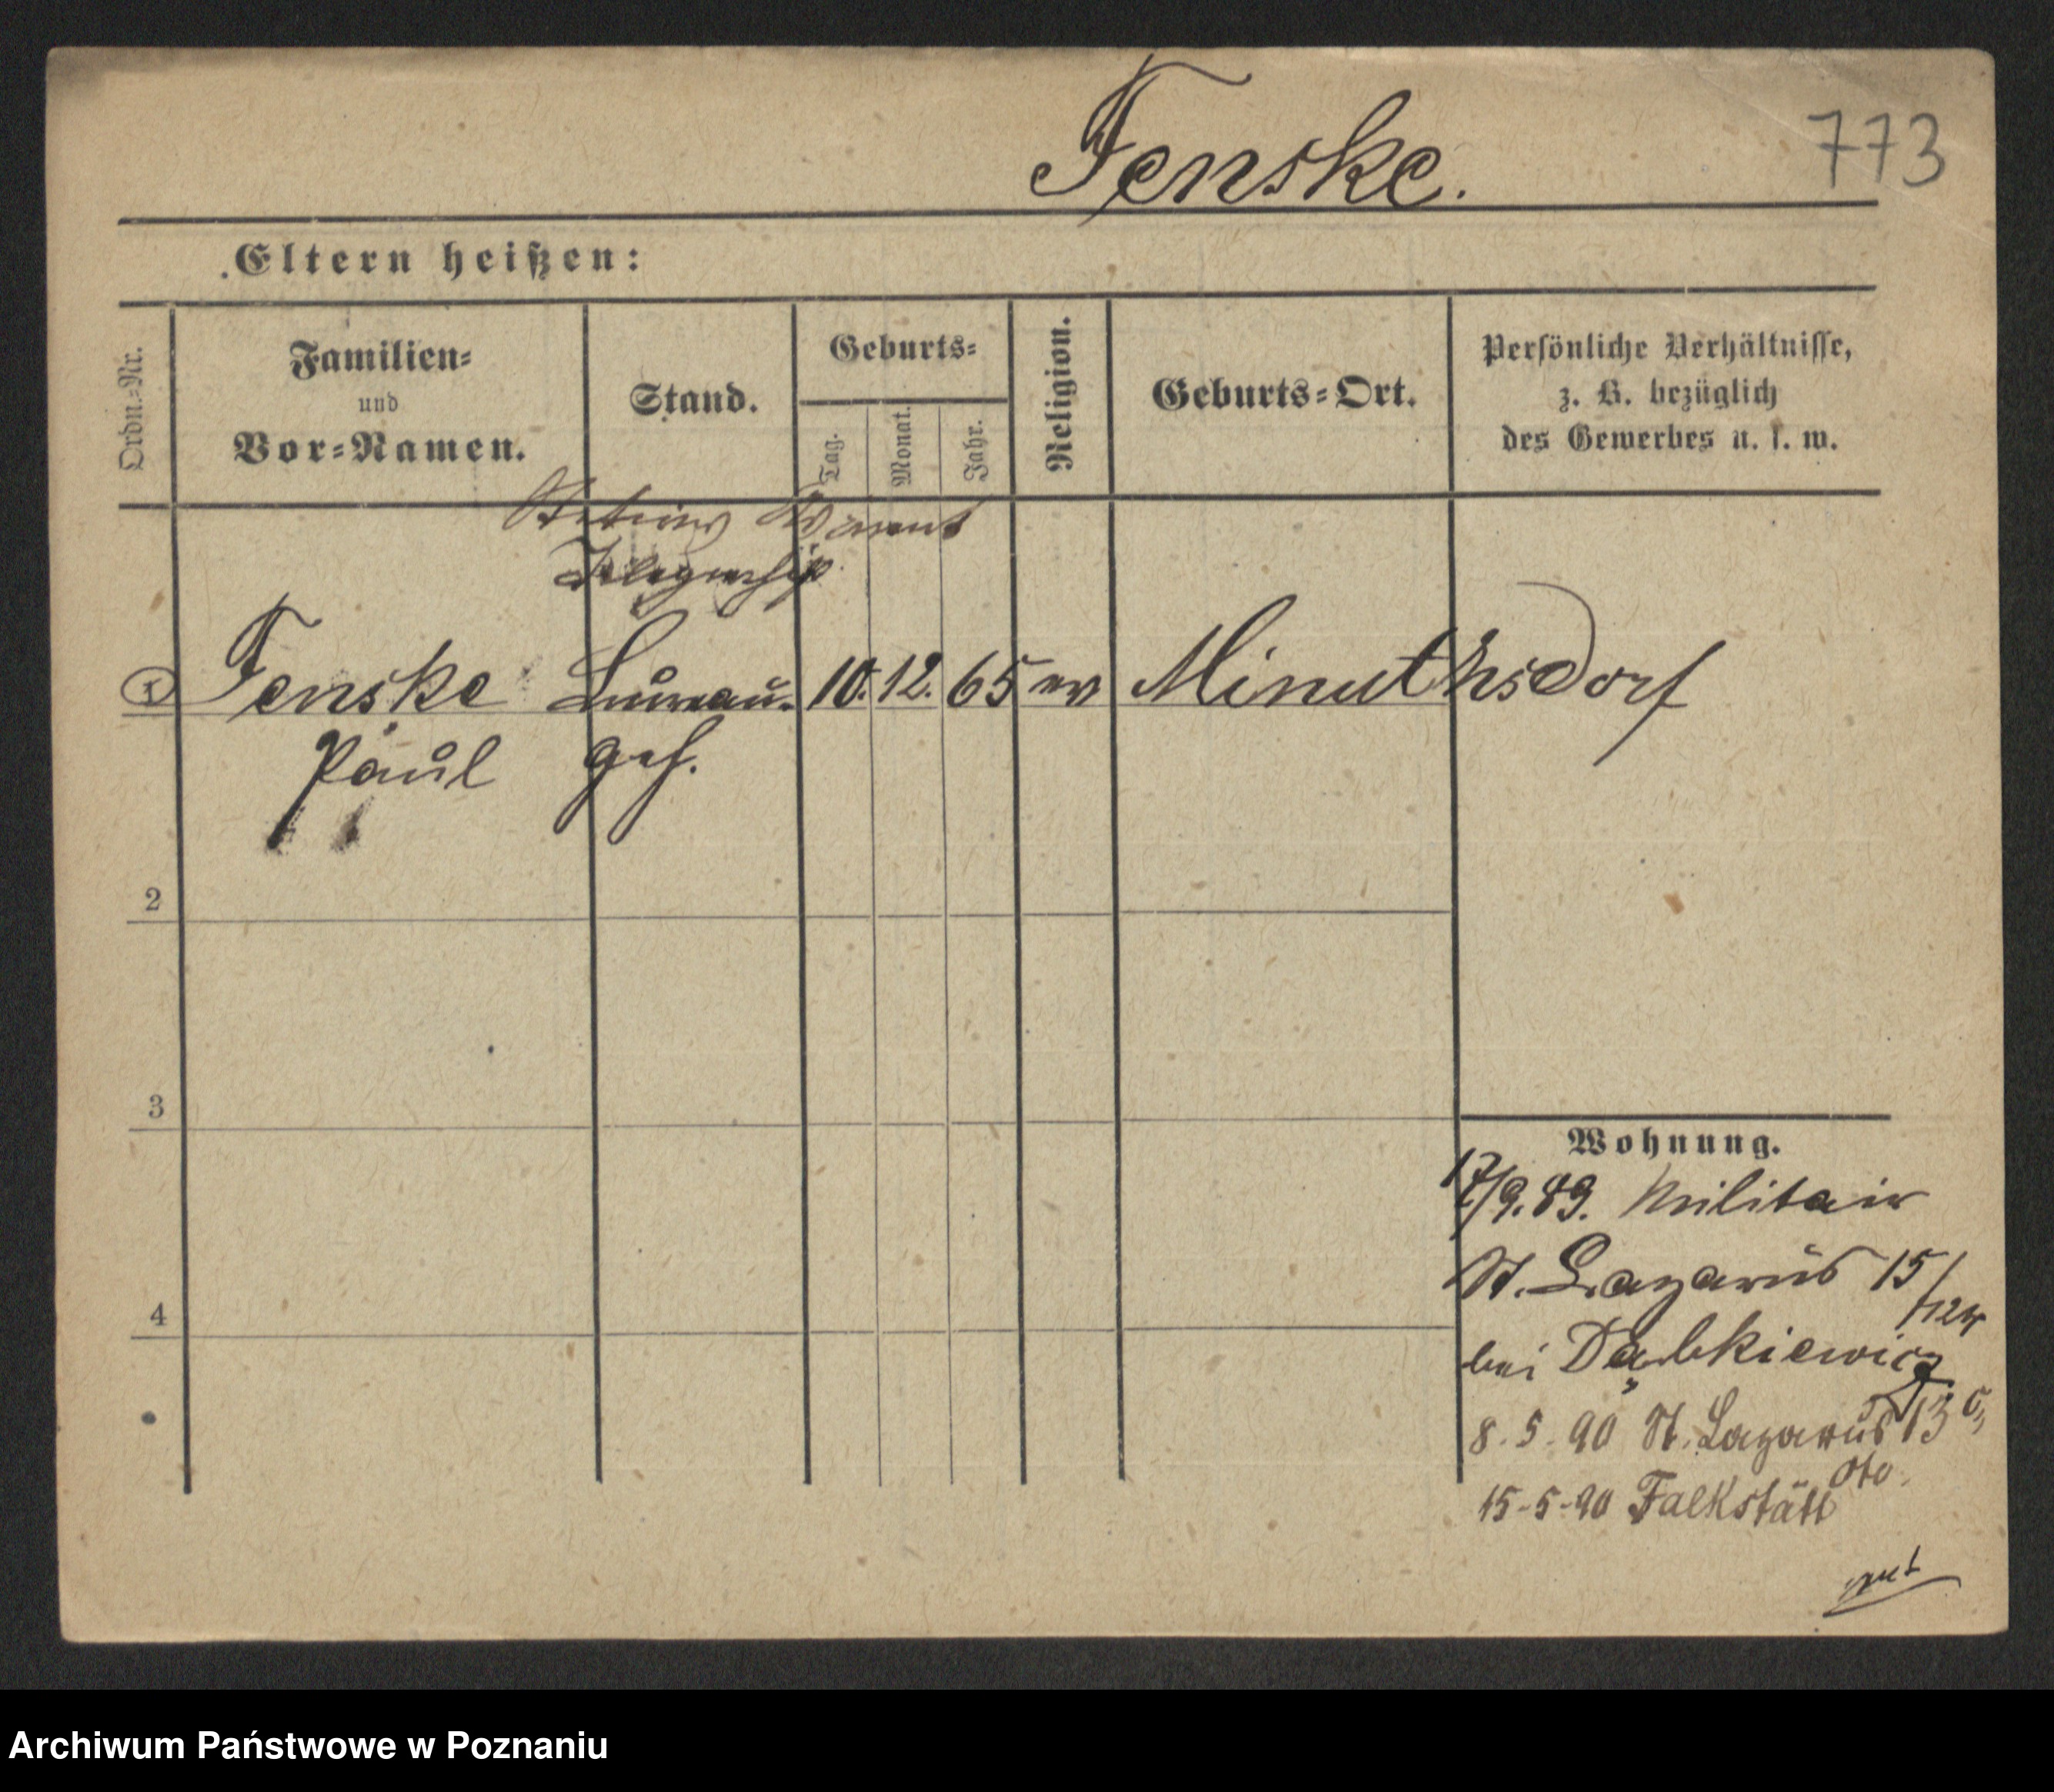 Fenske.
773
Eltern heißen:
Ordn.-Nr.
Familien-
und
Vor-Namen.
Stand.
Geburts-
Tag.
Monat.
Jahr.
Religion.
Geburts-Ort.
Persönliche Verhältnisse,
z. B. bezüglich
des Gewerbes u. s. w.
1 Fenske Bureau- 10. 12. 65 ev Minuthsdorf
Paul geh.
2
3
4
Wohnung.
17/9. 89. Militair
St. Lazarus 15/
bei Dąbkiewicz
8. 5. 90 St. Lazarus 13
15-5-90 Falkstätt
Archiwum Państwowe w Poznaniu